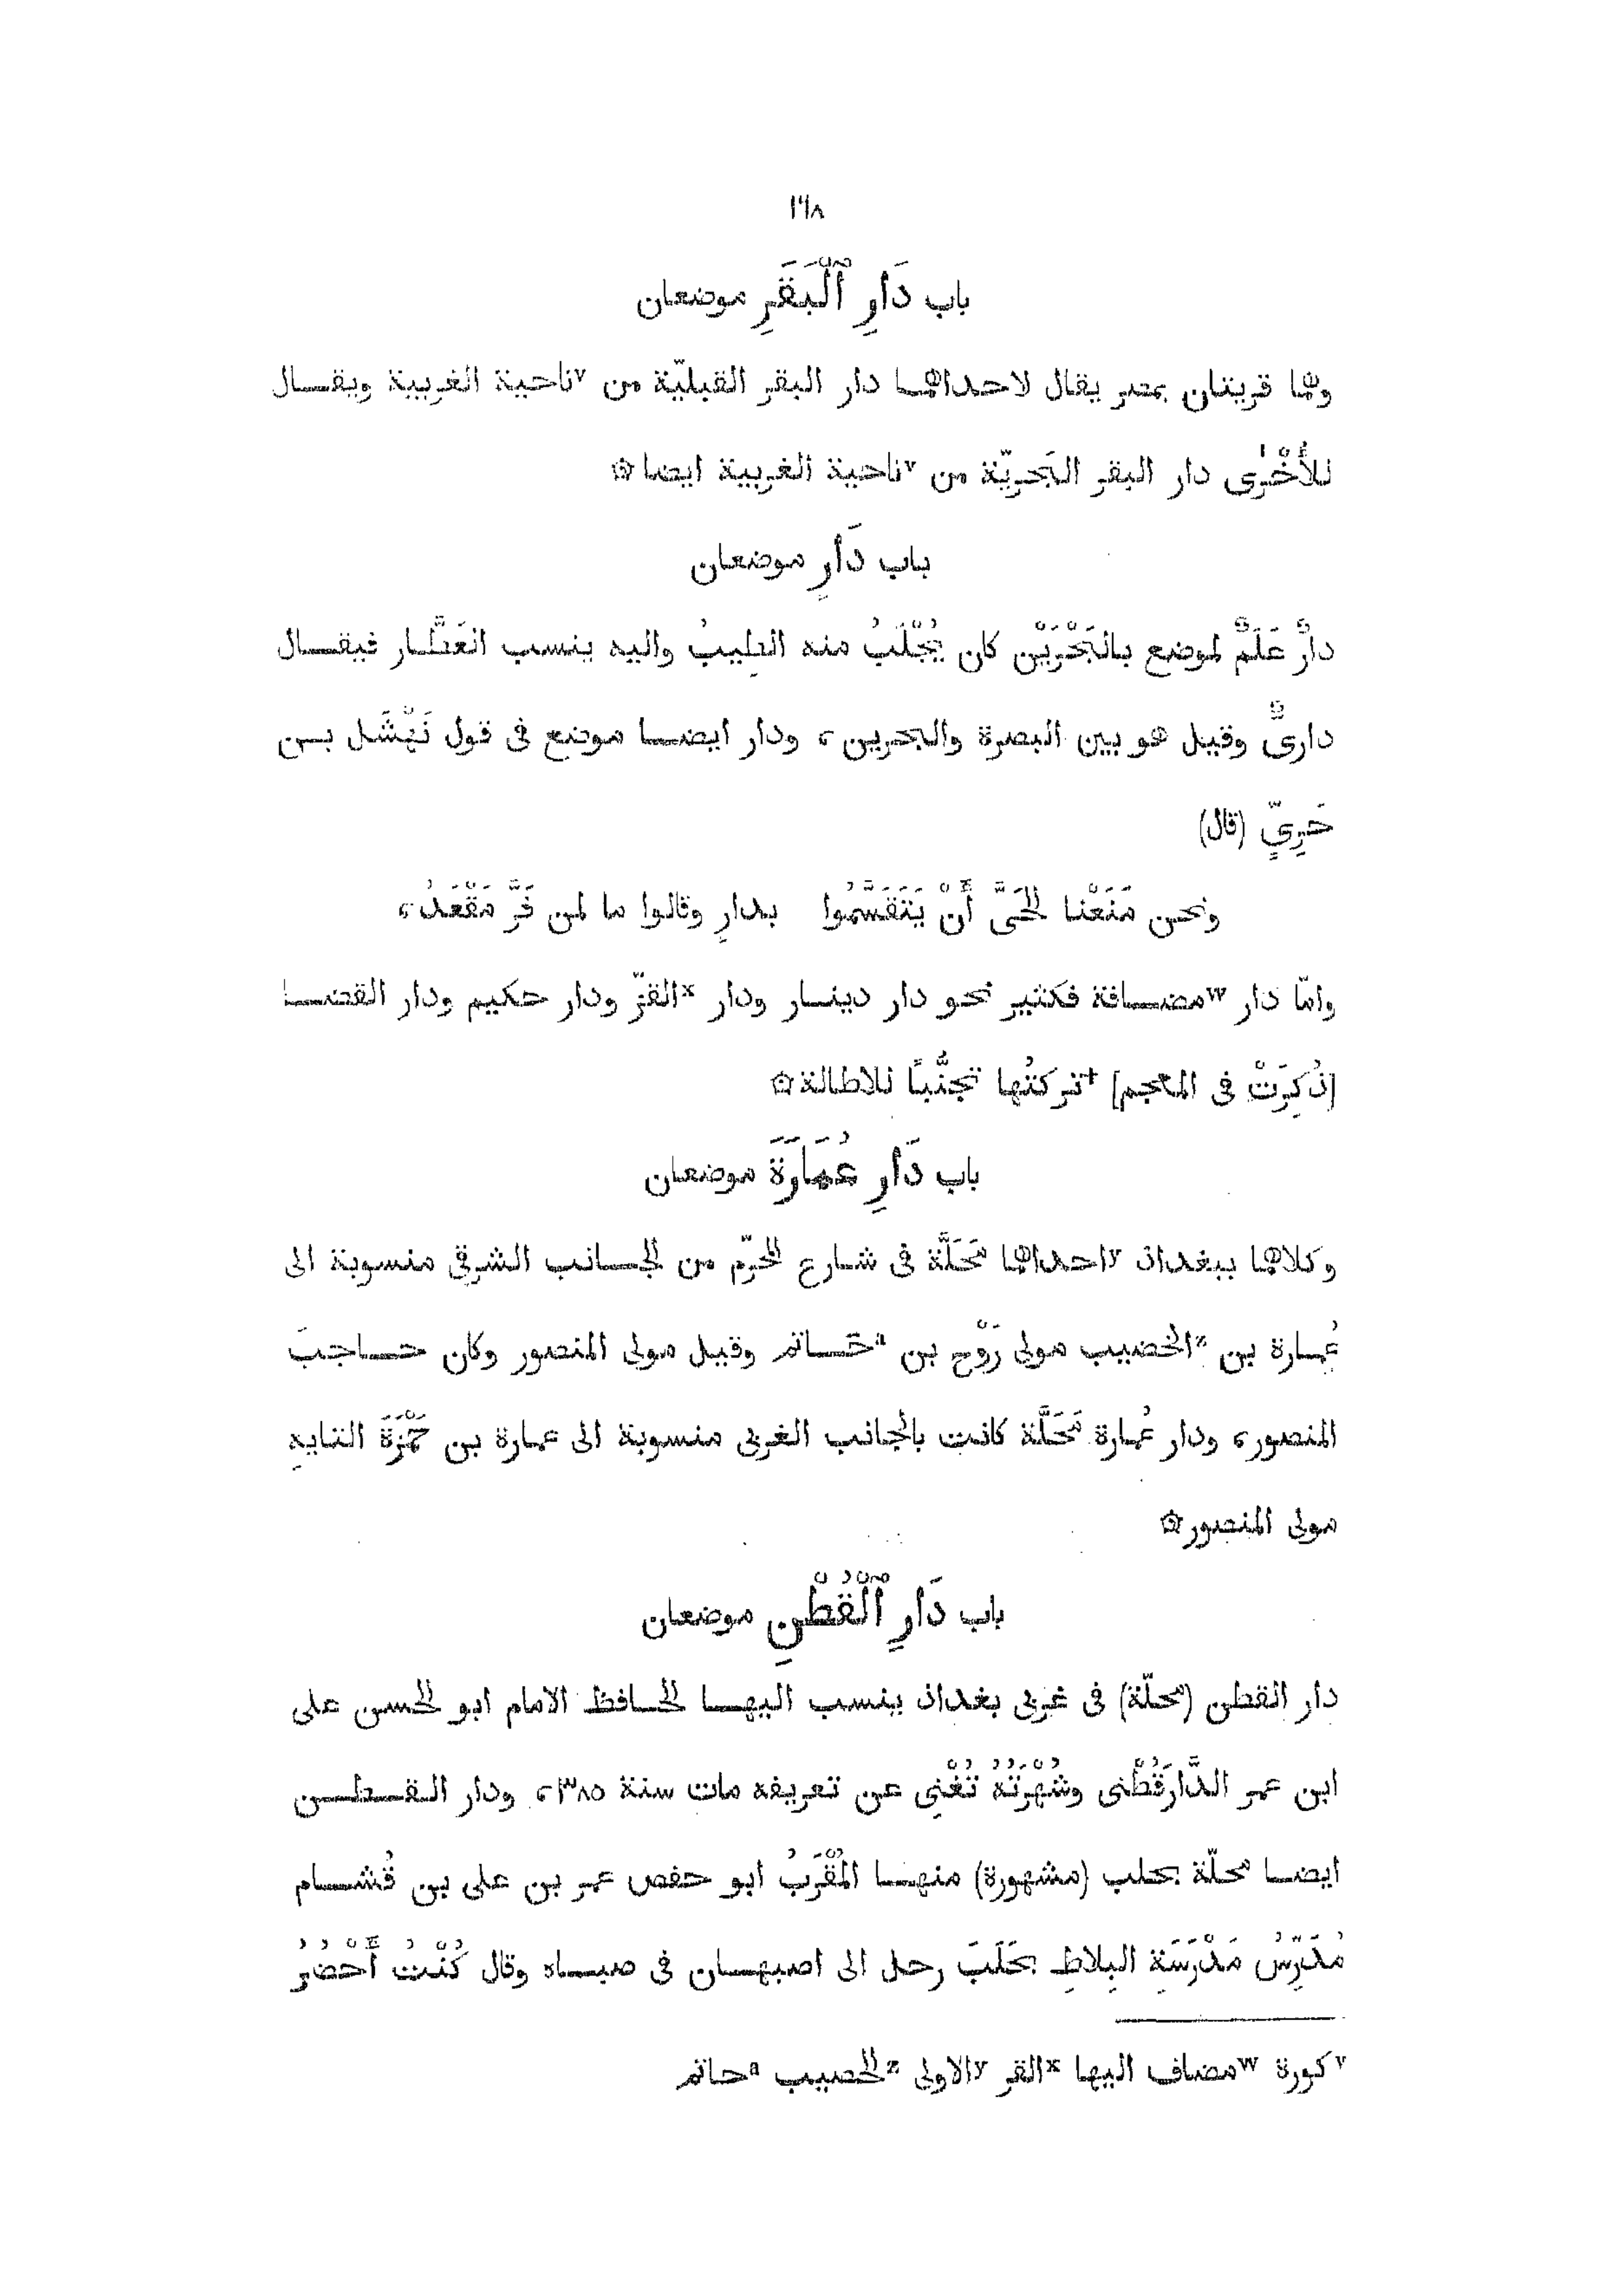 ١٦٨
باب دَارِ ٱلْبَقَرِ موضعان
وهما قريتان بمصر يقال لاحداهما دار البقر القبليّة من ᵛناحية الغربية ويقال
للأُخْرَى دار البقر البَحريّة من ᵛناحية الغربية ايضا ۞
باب دَارٍ موضعان
دارٌ عَلَمٌ لموضع بالبَحْرَيْن كان يُجْلَبُ منه الطيبُ واليه ينسب العَطَّار فيقال
دارىٌّ وقيل هو بين البصرة والبحرين، ودار ايضا موضع فى قول نَهْشَل بن
حَرِىٍّ (قال)
ونحن مَنَعْنا الحَىَّ أَنْ يَتَقَسَّمُوا بدارٍ وقالوا ما لمن فَرَّ مَقْعَدُ،
وامّا دار ʷمضافة فكثير نحو دار دينار ودار ˣالقزّ ودار حكيم ودار القضا
[ذُكِرَتْ فى المعجم] †تركتُها تجنُّبًا للاطالة ۞
باب دَارِ عُمَارَةَ موضعان
وكلاهما ببغداذ ʸاحداهما مَحَلَّة فى شارع المخرّم من الجانب الشرقى منسوبة الى
عُمارة بن ᶻالخضيب مولى رَوْح بن ᵃحَاتم وقيل مولى المنصور وكان حاجبَ
المنصور، ودار عُمارة مَحَلَّة كانت بالجانب الغربى منسوبة الى عمارة بن حَمْزَةَ التايهِ
مولى المنصور ۞
باب دَارِ ٱلْقُطْنِ موضعان
دار القطن (محلّة) فى غربى بغداذ ينسب اليها الحافظ الامام ابو الحسن على
ابن عمر الدَّارَقُطْنى وشُهْرَتُهُ تُغْنِى عن تعريفه مات سنة ٣٨٥، ودار القطن
ايضا محلّة بحلب (مشهورة) منها المُقْرَبُ ابو حفص عمر بن على بن قُشام
مُدَرِّسُ مَدْرَسَةِ البِلاطِ بحَلَبَ رحل الى اصبهان فى صباه وقال كُنْتُ أَحْضُرُ
ᵛكورة ʷمضاف اليها ˣالقر ʸالاولى ᶻالحصيب ᵃحاتم